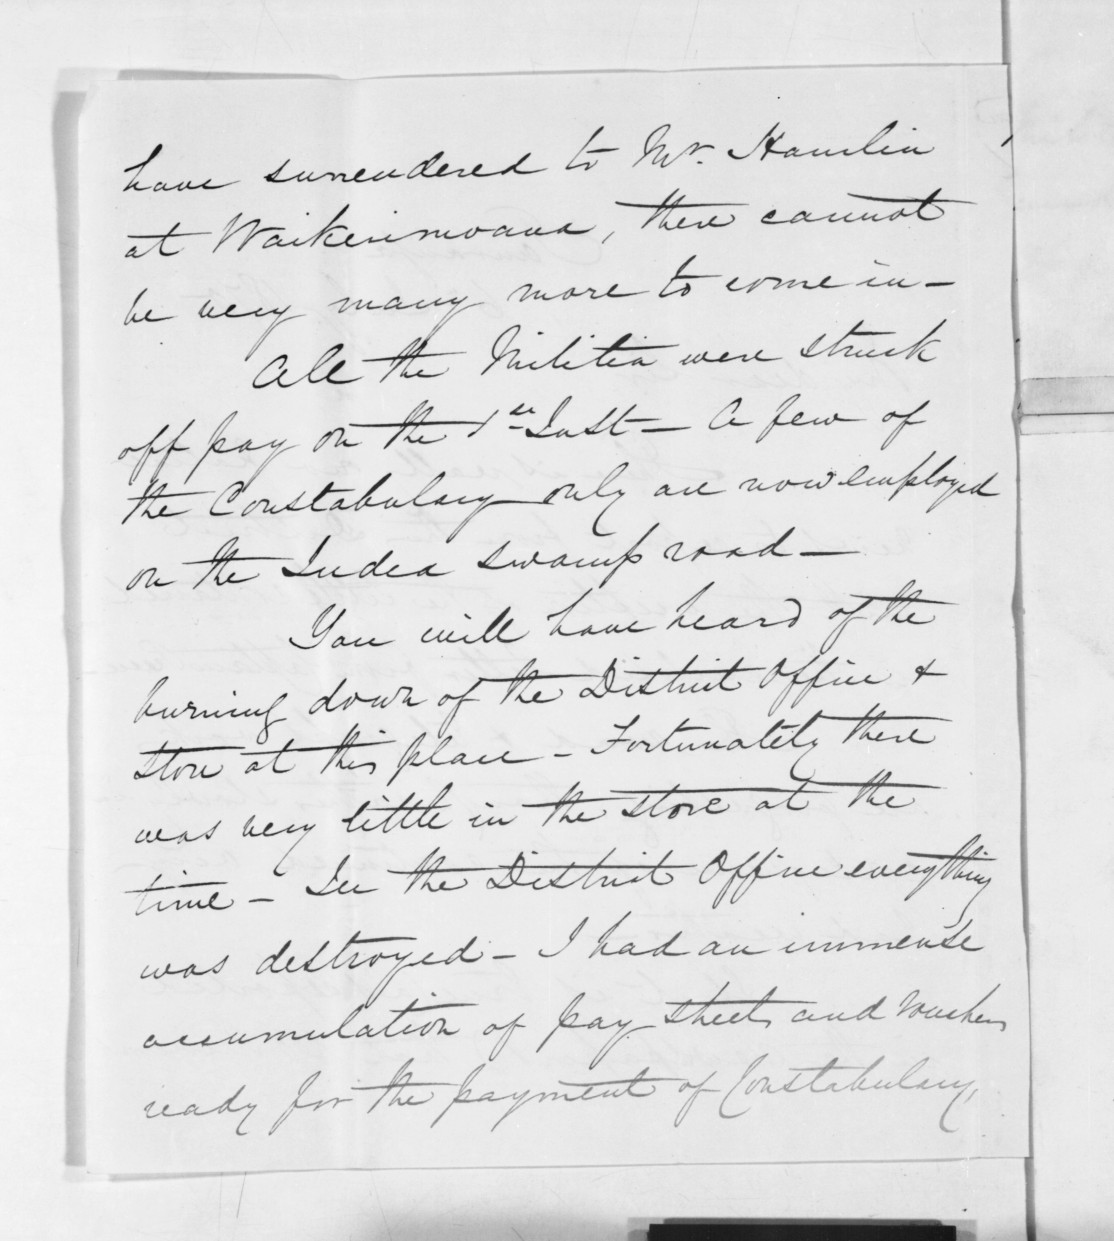 have surrendered to Mr. Hamlin
at Waikerimoana, there cannot
be very many more to come in -
All the Militia were struck
off pay on the 1st Inst - A few of
the Constabulary only are now employed
on the swamp road -
You will have heard of the
burning down of the District Office &
store at this place - Fortunately there
was very little in the store at the
time - In the District Office everything
was destroyed - I had an immense
accumulation of pay sheets and vouchers
ready for the payment of Constabulary,